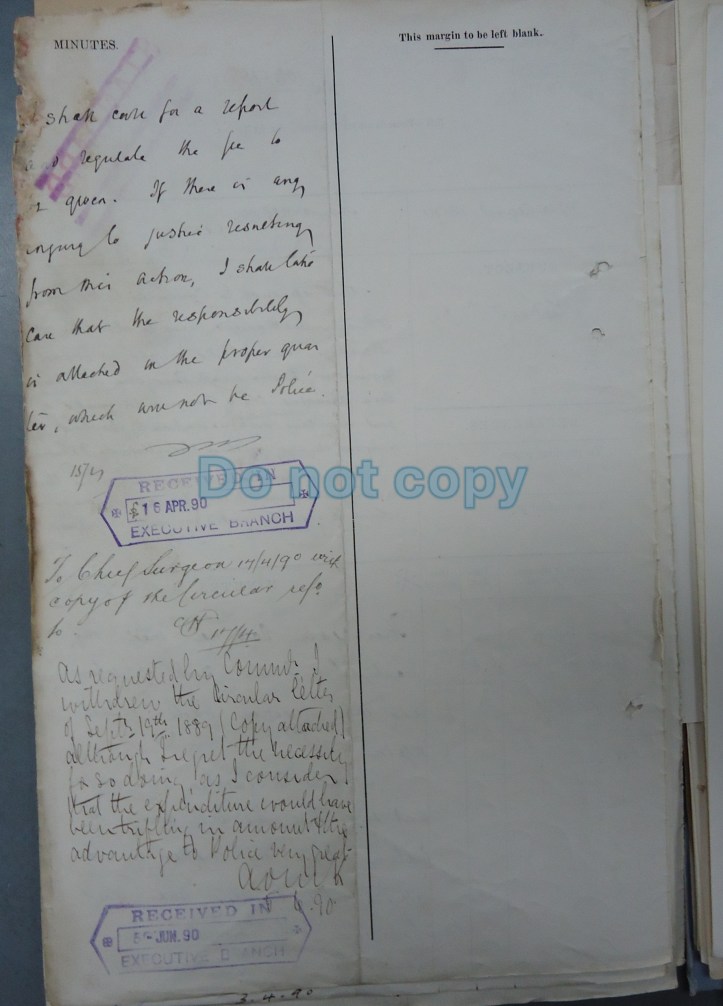 MINUTES.
This margin to be left blank.
shall call for a report
regulate the fee to
given. If there is any
injury to justice resulting
from this action, I shall take
care that the responsibility
is attached in the proper quar
ter, which will not be Police.
15/4
RECEIVED IN
16 APR. 90
EXECUTIVE BRANCH
Do not copy
To Chief Surgeon 17/4/90 with
copy of the Circular refd.
to.
17/4
As requested by Commr. I
withdrew the Circular letter
of Septr. 19th. 1889 (Copy attached)
although I regret the necessity
for so doing, as I consider
that the expenditure would have
been trifling in amount & the
advantage to Police very great
6.90
RECEIVED IN
5-JUN. 90
EXECUTIVE BRANCH
3.4.90